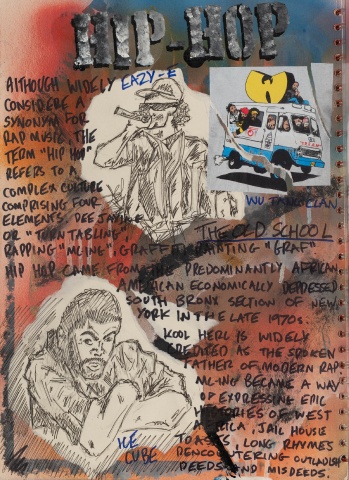 HIP-HOP
ALTHOUGH WIDELY
CONSIDERE A
SYNONYM FOR
RAP MUSIC, THE
TERM "HIP HOP"
REFERS TO A
COMPLEX CULTURE
COMPRISING FOUR
ELEMENTS. DEEJAYING
OR "TURN TABLING",
RAPPING "MCING", GRAFFITI PAINTING "GRAF"
EAZY-E
WU TANG CLAN
THE OLD SCHOOL
HIP HOP CAME FROM THE PREDOMINANTLY AFRICAN
AMERICAN ECONOMICALLY DEPRESSED
SOUTH BRONX SECTION OF NEW
YORK IN THE LATE 1970s.
KOOL HERC IS WIDELY
CREDITED AS THE SPOKEN
FATHER OF MODERN RAP
MCING BECAME A WAY
OF EXPRESSING EPIC
HISTORIES OF WEST
AFRICA, JAIL HOUSE
TOASTS, LONG RHYMES
OUTLANDISH
DEEDS AND MISDEEDS.
ICE
CUBE